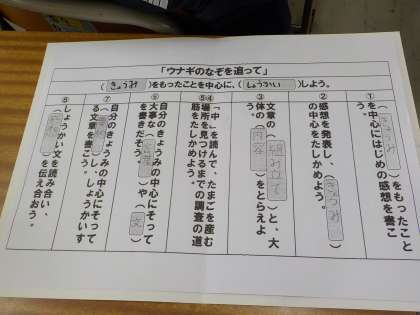 「ウナギのなぞを追って」
（きょうみ）をもったことを中心に、（しょうかい）しよう。
①
（きょうみ）をもったこと
を中心にはじめの感想を書こ
う。
②
感想を発表し、（きょうみ）
の中心をたしかめよう。
③
文章の（組み立て）と、大
体の（内容）をとらえよ
う。
④⑤
「中」を読んで、たまごを産む
場所を見つけるまでの調査の道
筋をたしかめよう。
⑥
自分のきょうみの中心にそって
大事な（）や（文）
を書きだそう。
⑦
自分のきょうみの中心にそって
（）る文章を書こう。しょうかいす
⑧
しょうかい文を読み合い、
（）を伝え合おう。